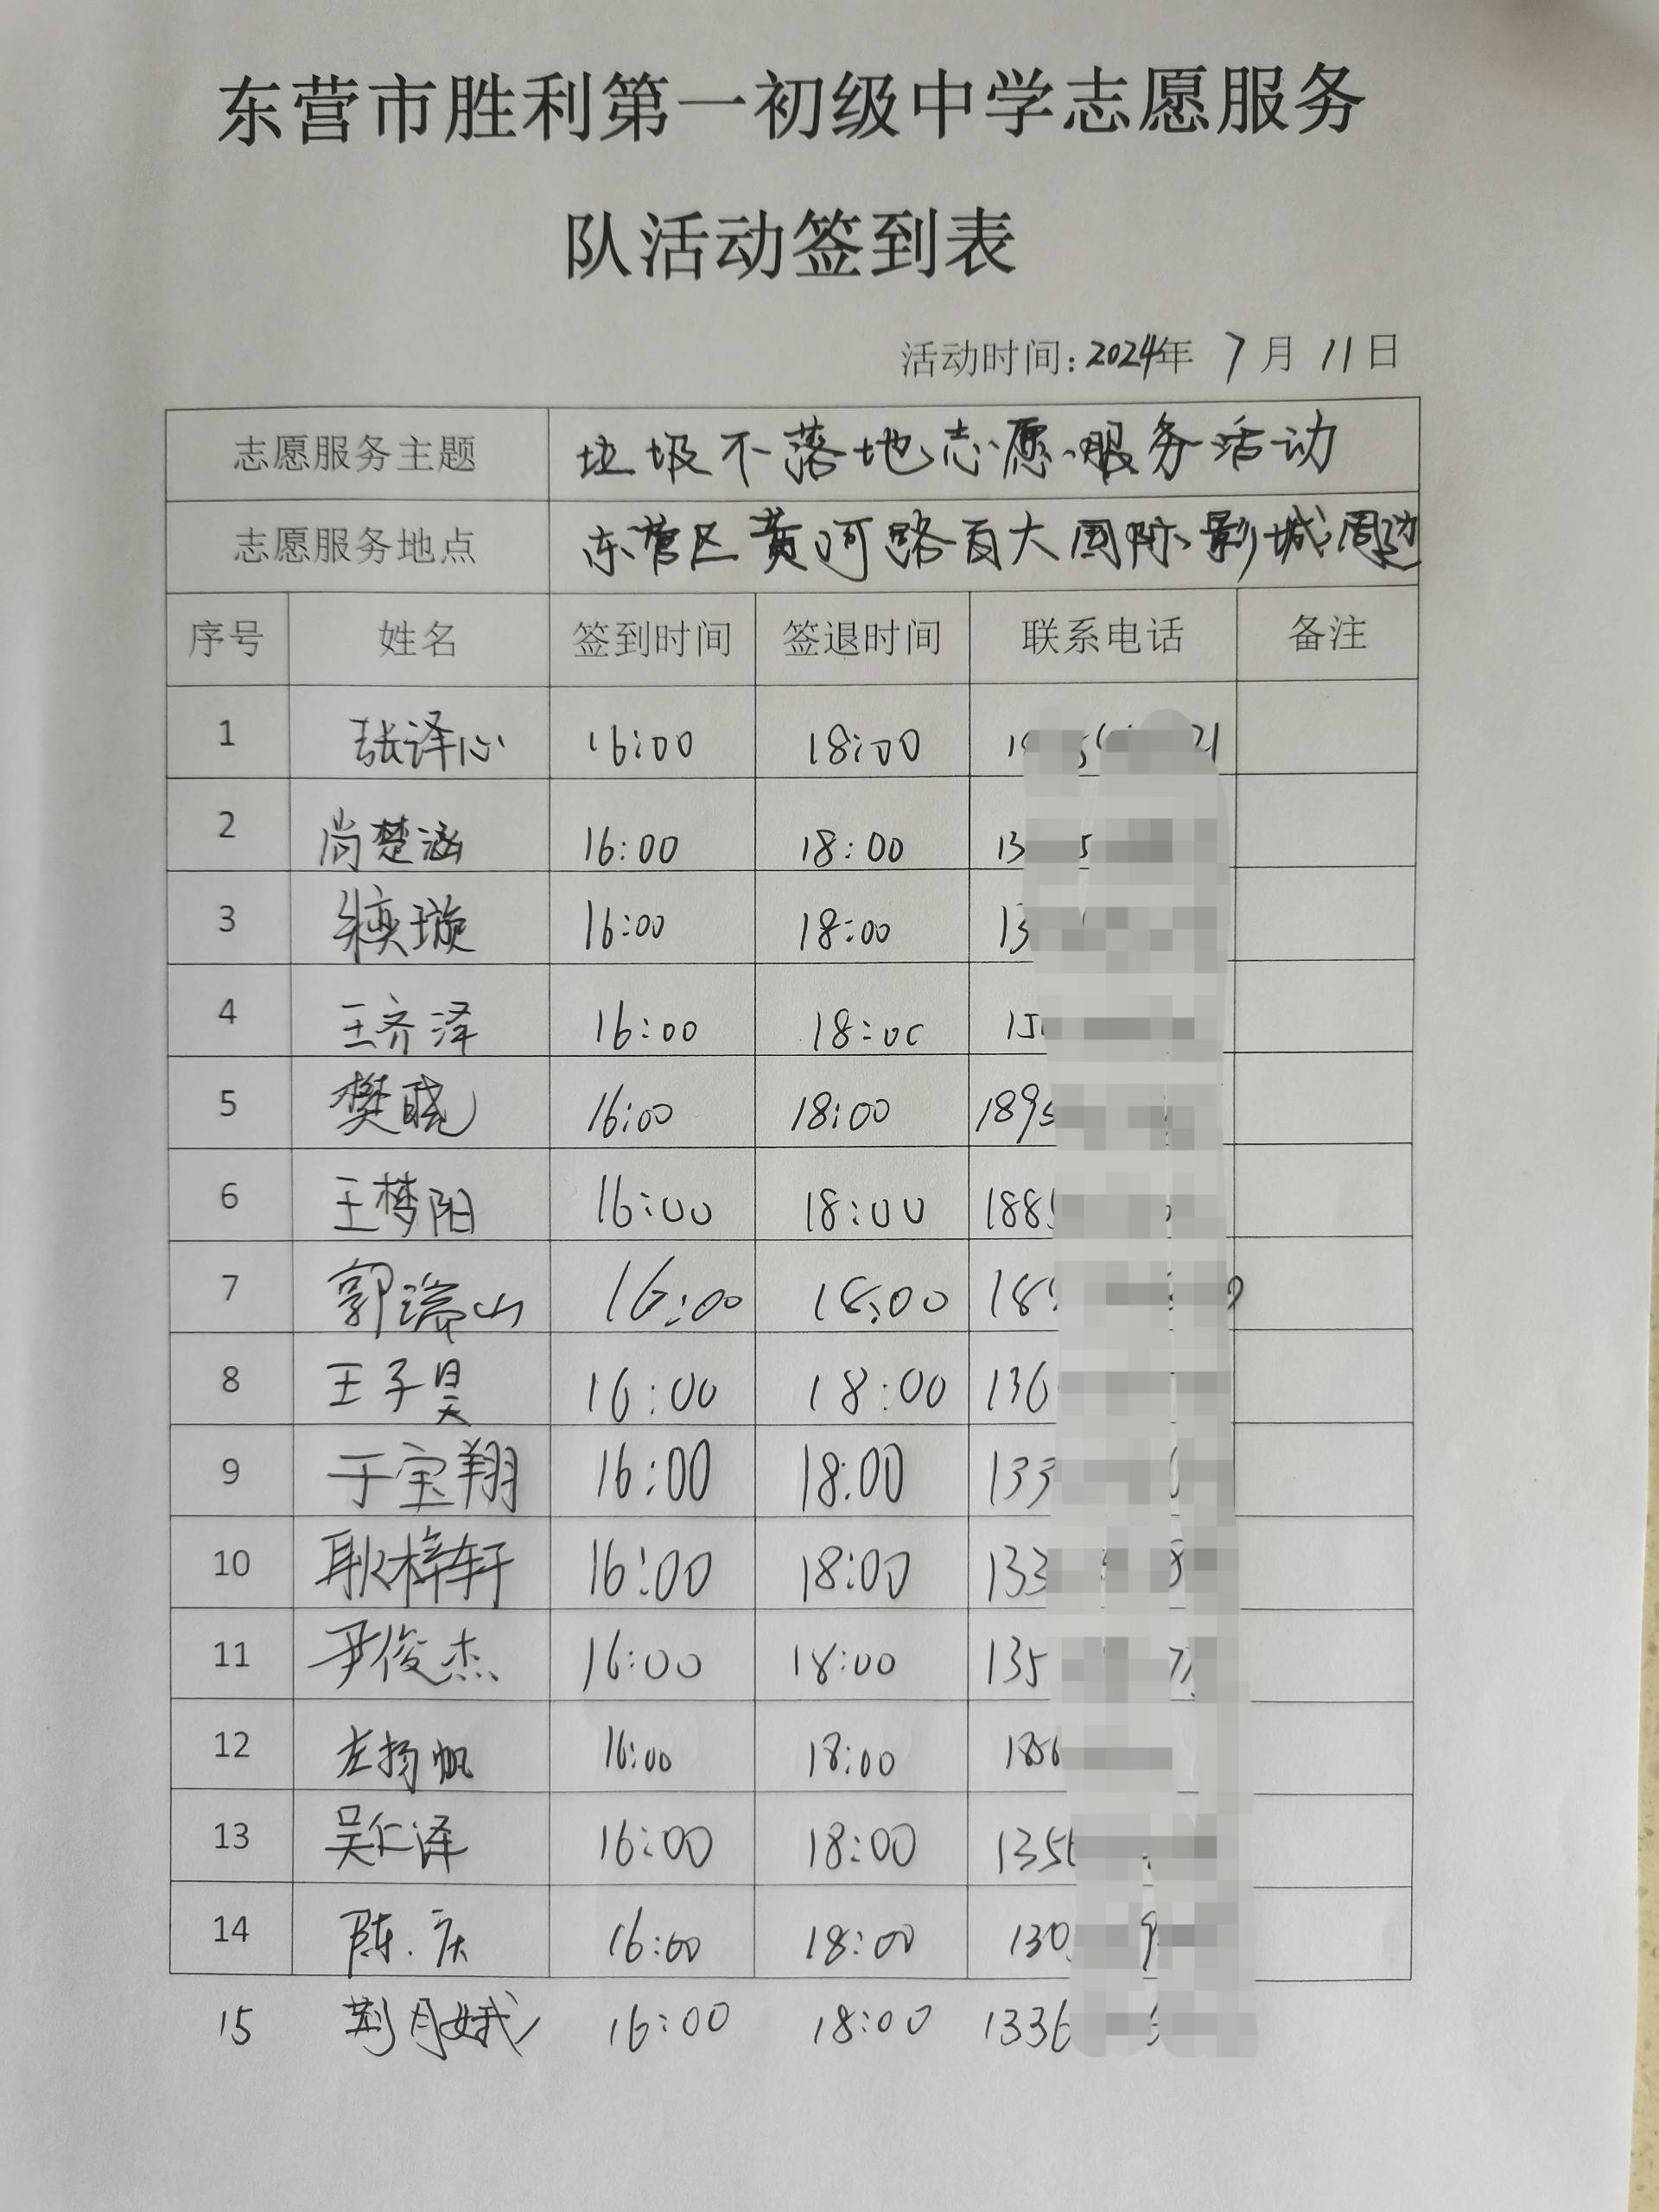 东营市胜利第一初级中学志愿服务
队活动签到表
活动时间:2024年 7月 11日
志愿服务主题 垃圾不落地志愿服务活动
志愿服务地点 东营区黄河路百大国际影城周边
序号 姓名 签到时间 签退时间 联系电话 备注
1 张译心 16:00 18:00
2 尚楚涵 16:00 18:00 13
3 16:00 18:00 13
4 王齐泽 16:00 18:00 15
5 樊晓 16:00 18:00 1895
6 王梦阳 16:00 18:00 188
7 郭瑞山 16:00 18:00 18
8 王子昊 16:00 18:00 136
9 于宝翔 16:00 18:00 133
10 耿梓轩 16:00 18:00 133
11 尹俊杰 16:00 18:00 135
12 左扬帆 16:00 18:00 186
13 吴仁泽 16:00 18:00 135
14 陈庆 16:00 18:00 130
15 荆月娥 16:00 18:00 1336